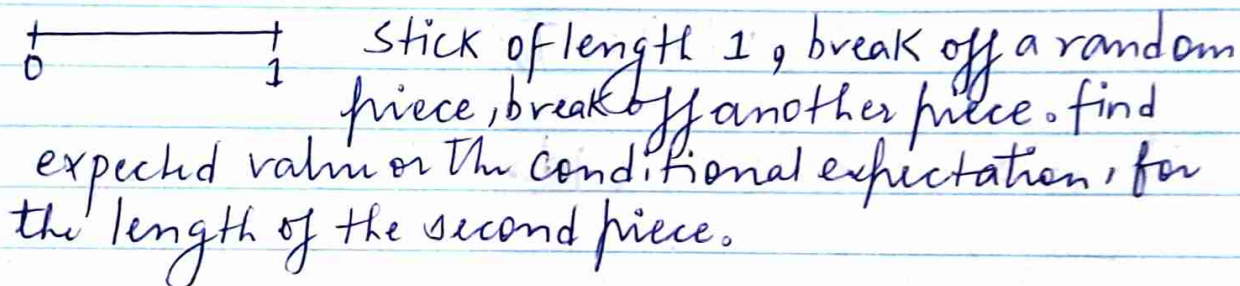 Stick of length 1, break off a random
0 1
piece, break off another piece. find
expected value or the conditional expectation, for
the length of the second piece.